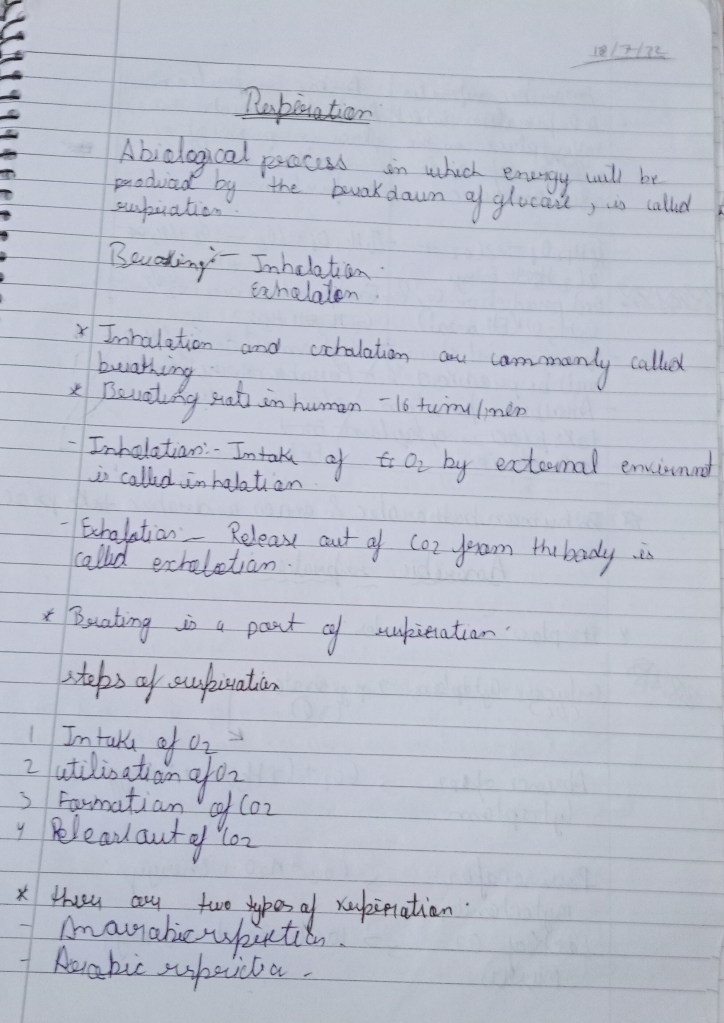 18/7/22
Respiration
A biological process in which energy will be
produced by the breakdown of glucose, is called
respiration.
Breathing:- Inhalation.
Exhalaton.
* Inhalation and exhalation are commonly called
breathing
* Breating rate in human - 16 time/min
- Inhalation:- Intake of O2 by external envirnment
is called inhalation.
- Exhalation:- Release out of CO2 from the body is
called exhalation.
* Breating is a part of respiration.
steps of respiration
1 Intake of O2
2 utilisation of O2
3 Formation of CO2
4 Release out of CO2
* there are two types of respiration.
- Anaerabic
- Aerabic